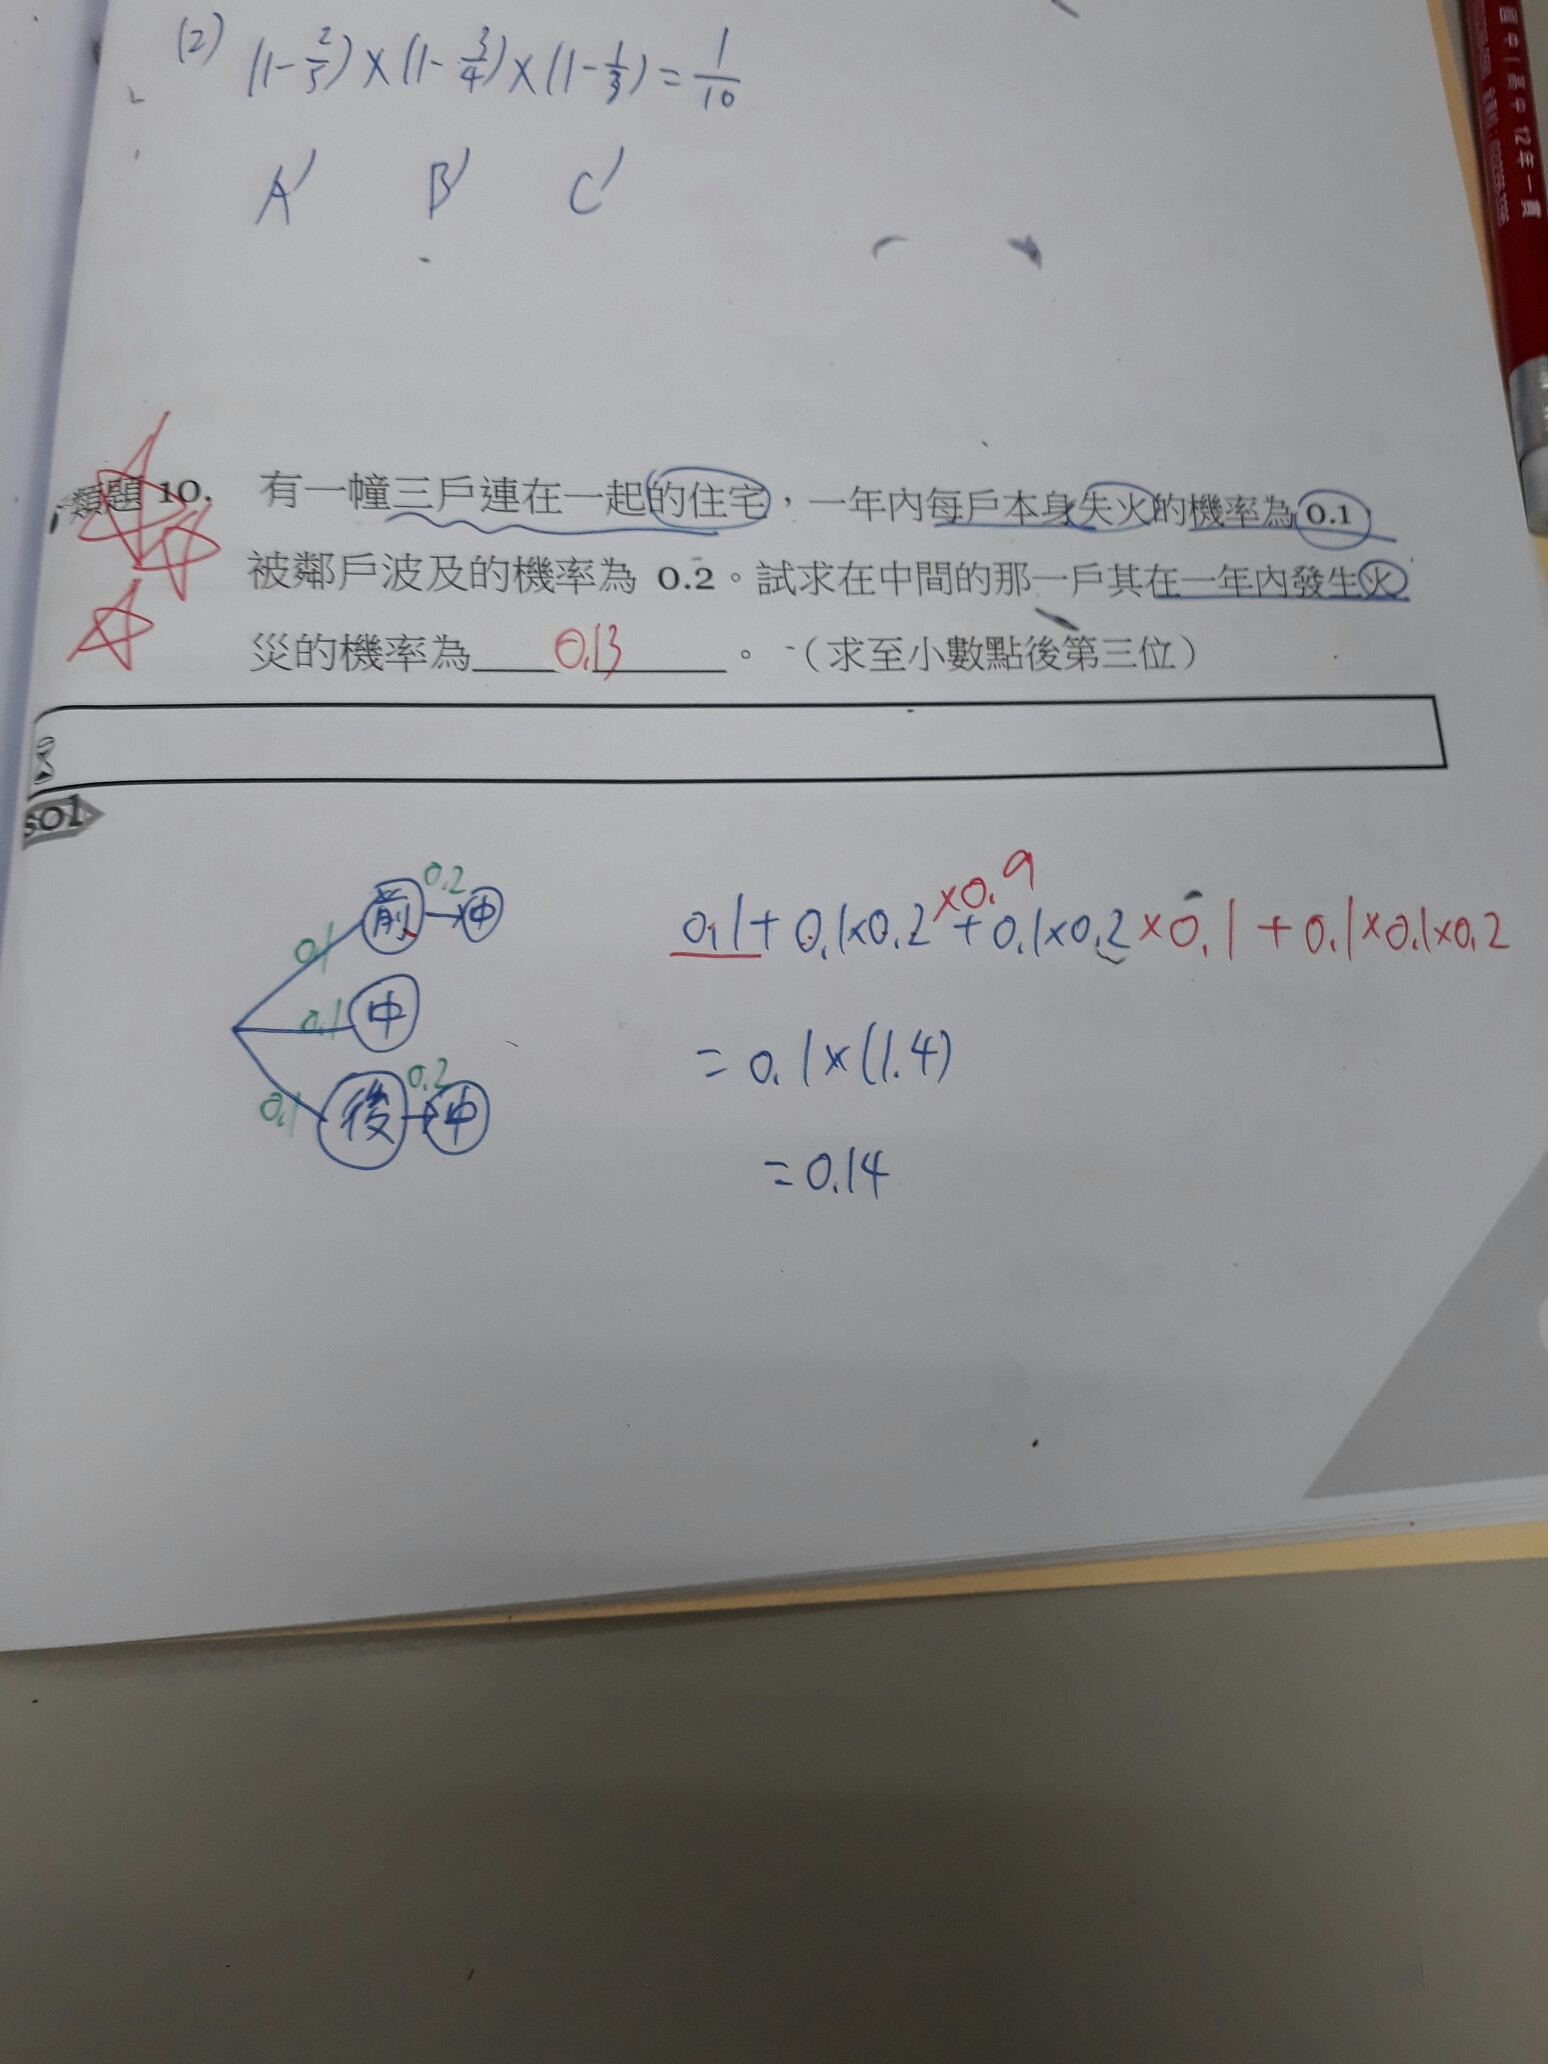 (2) (1-2/5)×(1-3/4)×(1-1/3)=1/10
A' B' C'
類題 10. 有一幢三戶連在一起的住宅，一年內每戶本身失火的機率為 0.1
被鄰戶波及的機率為 0.2。試求在中間的那一戶其在一年內發生火
災的機率為 0.13 。（求至小數點後第三位）
sol
0.1 前 0.2 中
0.1 中
0.1 後 0.2 中
0.1+0.1×0.2×0.9+0.1×0.2×0.1+0.1×0.1×0.2
=0.1×(1.4)
=0.14
國中/高中 12年一貫